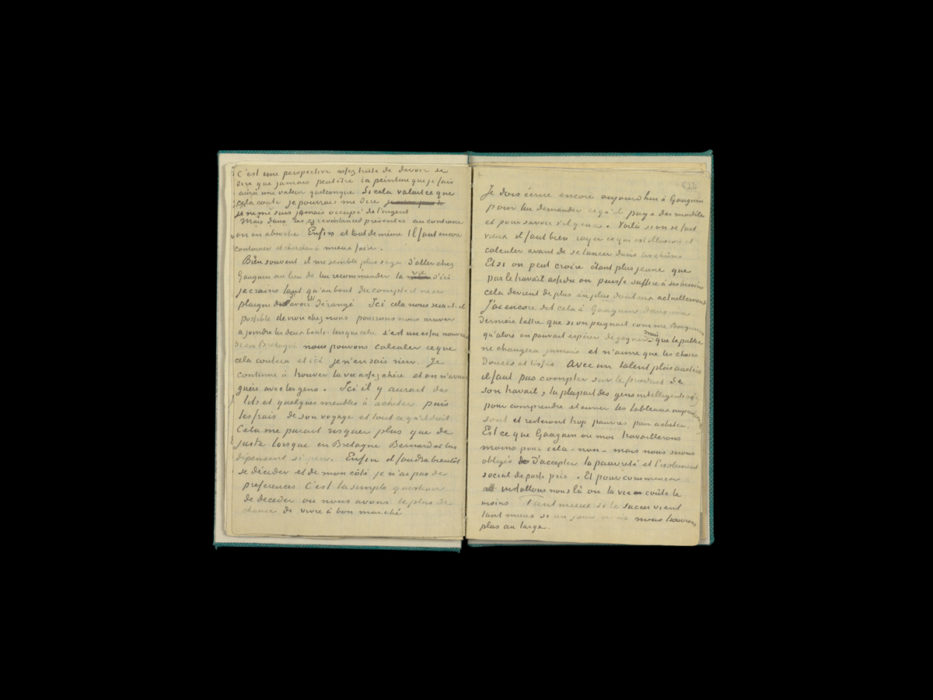 C'est une perspective assez triste de devoir se
dire que jamais peut être la peinture que je fais
aura une valeur quelconque. Si cela valait ce que
cela coute je pourrais me dire
je ne me suis jamais occupé de l'argent
Mais dans les circonstances présentes au contraire
on en absorbe. Enfin et tout de même Il faut encore
continuer et chercher à mieux faire.
Bien souvent il me semble plus sage d'aller chez
Gauguin au lieu de lui recommander la vie d'ici
je crains tant qu'au bout du compte il ne se
plaigne d'avoir été dérangé Ici cela nous sera t-il
possible de vivre chez nous pourrons nous arriver
à joindre les deux bouts. lorsque cela c'est un essai nouveau
Or en Bretagne nous pouvons calculer ce que
cela coutera et ici je n'en sais rien. Je
continue à trouver la vie assez chère et on n'avance
guère avec les gens. Ici il y aurait des
lits et quelques meubles à acheter puis
les frais de son voyage et tout ce qu'il doit.
Cela me parait risquer plus que de
juste lorsque en Bretagne Bernard et lui
dépensent si peu. Enfin il faudra bientôt
se décider et de mon côté je n'ai pas de
préférences C'est la simple question
de decider où nous avons le plus de
chance de vivre à bon marché
Je dois écrire encore aujourd'hui à Gauguin
pour lui demander ce qu'il paye des modèles
et pour savoir s'il y en a. Voilà si on se fait
vieux il faut bien rayer ce qui est illusion et
calculer avant de se lancer dans les choses
Et si on peut croire étant plus jeune que
par le travail assidu on puisse suffire à ses besoins
cela devient de plus en plus douteux actuellement
J'ai encore dit cela à Gauguin dans ma
dernière lettre que si on peignait comme Bouguereau
qu'alors on pouvait espérer de gagner mais que le public
ne changera jamais et n'aime que les choses
Douces et lisses Avec un talent plus austère
il faut pas compter sur le produit de
son travail, la plupart des gens intelligents assez
pour comprendre et aimer les tableaux impress.
sont et resteront trop pauvres pour acheter.
Est ce que Gauguin ou moi travaillerons
moins pour cela - non - mais nous serons
obligés d'accepter la pauvreté et l'isolement
social de parti pris. Et pour commencer
installons nous là où la vie coûte le
moins. Tant mieux si le succès vient
tant mieux si un jour nous nous trouverons
plus au large